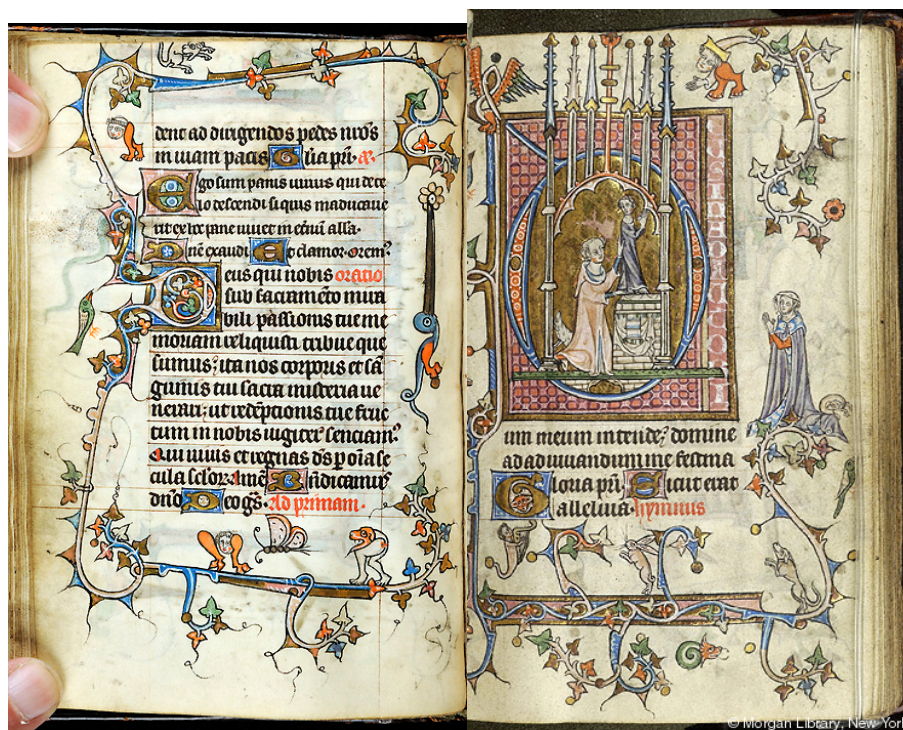 dent ad dirigendos pedes nr̄os
in uiam pacis Gl̄ia pr̄i. a.
Ego sum panis uiuus qui de ce
lo descendi si quis manducaue
rit ex hoc pane uiuet in et̄nū all̄a.
Dn̄e exaudi Et clamor. orem⁹
Deus qui nobis oratio
sub sacramēto mira
bili passionis tue me
moriam reliquisti tribue que
sumus; ita nos corporis et sā
guinis tui sacra misteria ue
nerari; ut redēptionis tue fruc
tum in nobis iugiter senciam⁹
Qui uiuis et regnas d̄s p oīa se
cula sc̄lor. Amē Bn̄dicamus
dn̄o Deo gr̄s. Ad primam.
um meum intende; domine
ad adiuuandum me festina
Gloria pr̄i Sicut erat
alleluia. hymnus
© Morgan Library, New York